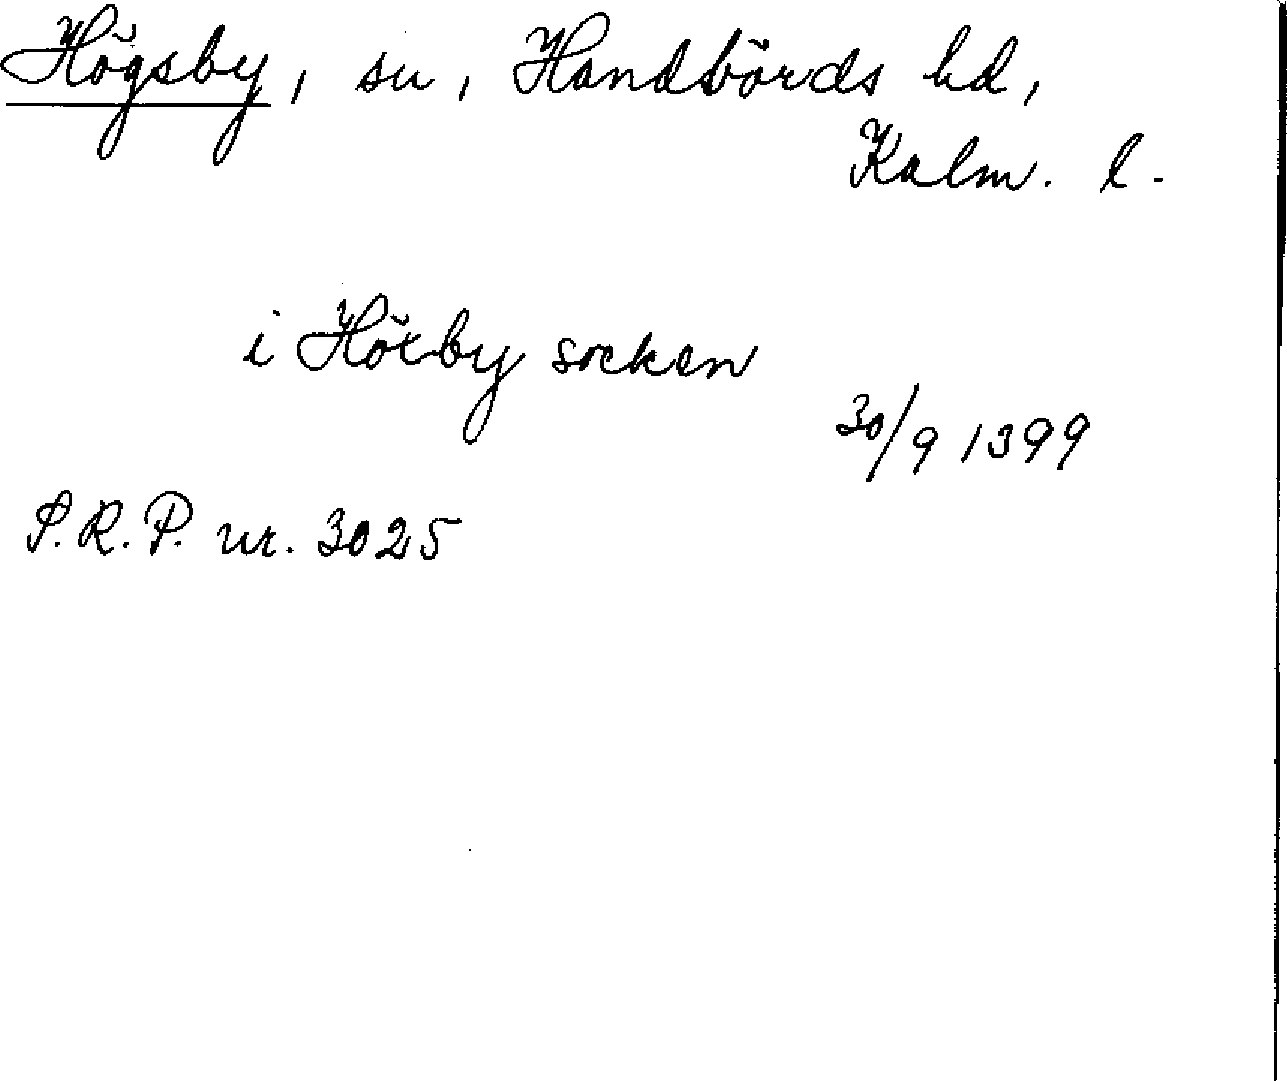 Högsby, sn, Handbörds hd,
Kalm. l.
i Hörby socken
30/9 1399
S.R.P. nr. 3025